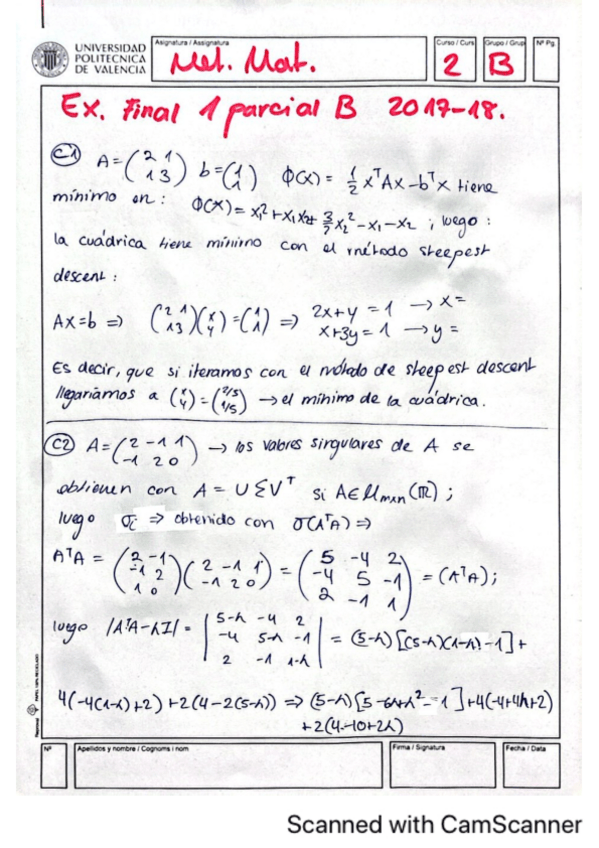 UNIVERSIDAD
POLITECNICA
DE VALENCIA
Asignatura / Assignatura
Met. Mat.
Curso / Curs
2
Grupo / Grup
B
Nº Pg.
Ex. Final 1 parcial B 2017-18.
C1) A=(2 1; 1 3) b=(1; 1) Φ(x) = 1/2 xᵀAx-bᵀx tiene
mínimo en: Φ(x)= x₁²+x₁x₂+ 3/2 x₂²-x₁-x₂ ; luego:
la cuádrica tiene mínimo con el método steepest
descent:
Ax=b => (2 1; 1 3)(x; y)=(1; 1) => 2x+y=1 → x=
x+3y=1 → y=
Es decir, que si iteramos con el método de steepest descent
llegaríamos a (x; y)=(2/5; 1/5) → el mínimo de la cuádrica.
C2) A=(2 -1 1; -1 2 0) → los valores singulares de A se
obtienen con A = UΣVᵀ si A∈Mmxn(ℝ);
luego σi => obtenido con σ(AᵀA) =>
AᵀA = (2 -1; -1 2; 1 0)(2 -1 1; -1 2 0) = (5 -4 2; -4 5 -1; 2 -1 1) = (AᵀA);
luego |AᵀA-λI| = |5-λ -4 2; -4 5-λ -1; 2 -1 1-λ| = (5-λ)[(5-λ)(1-λ)-1]+
4(-4(1-λ)+2)+2(4-2(5-λ)) => (5-λ)[5-6λ+λ²-1]+4(-4+4λ+2)
+2(4-10+2λ)
Nº
Apellidos y nombre / Cognoms i nom
Firma / Signatura
Fecha / Data
Scanned with CamScanner